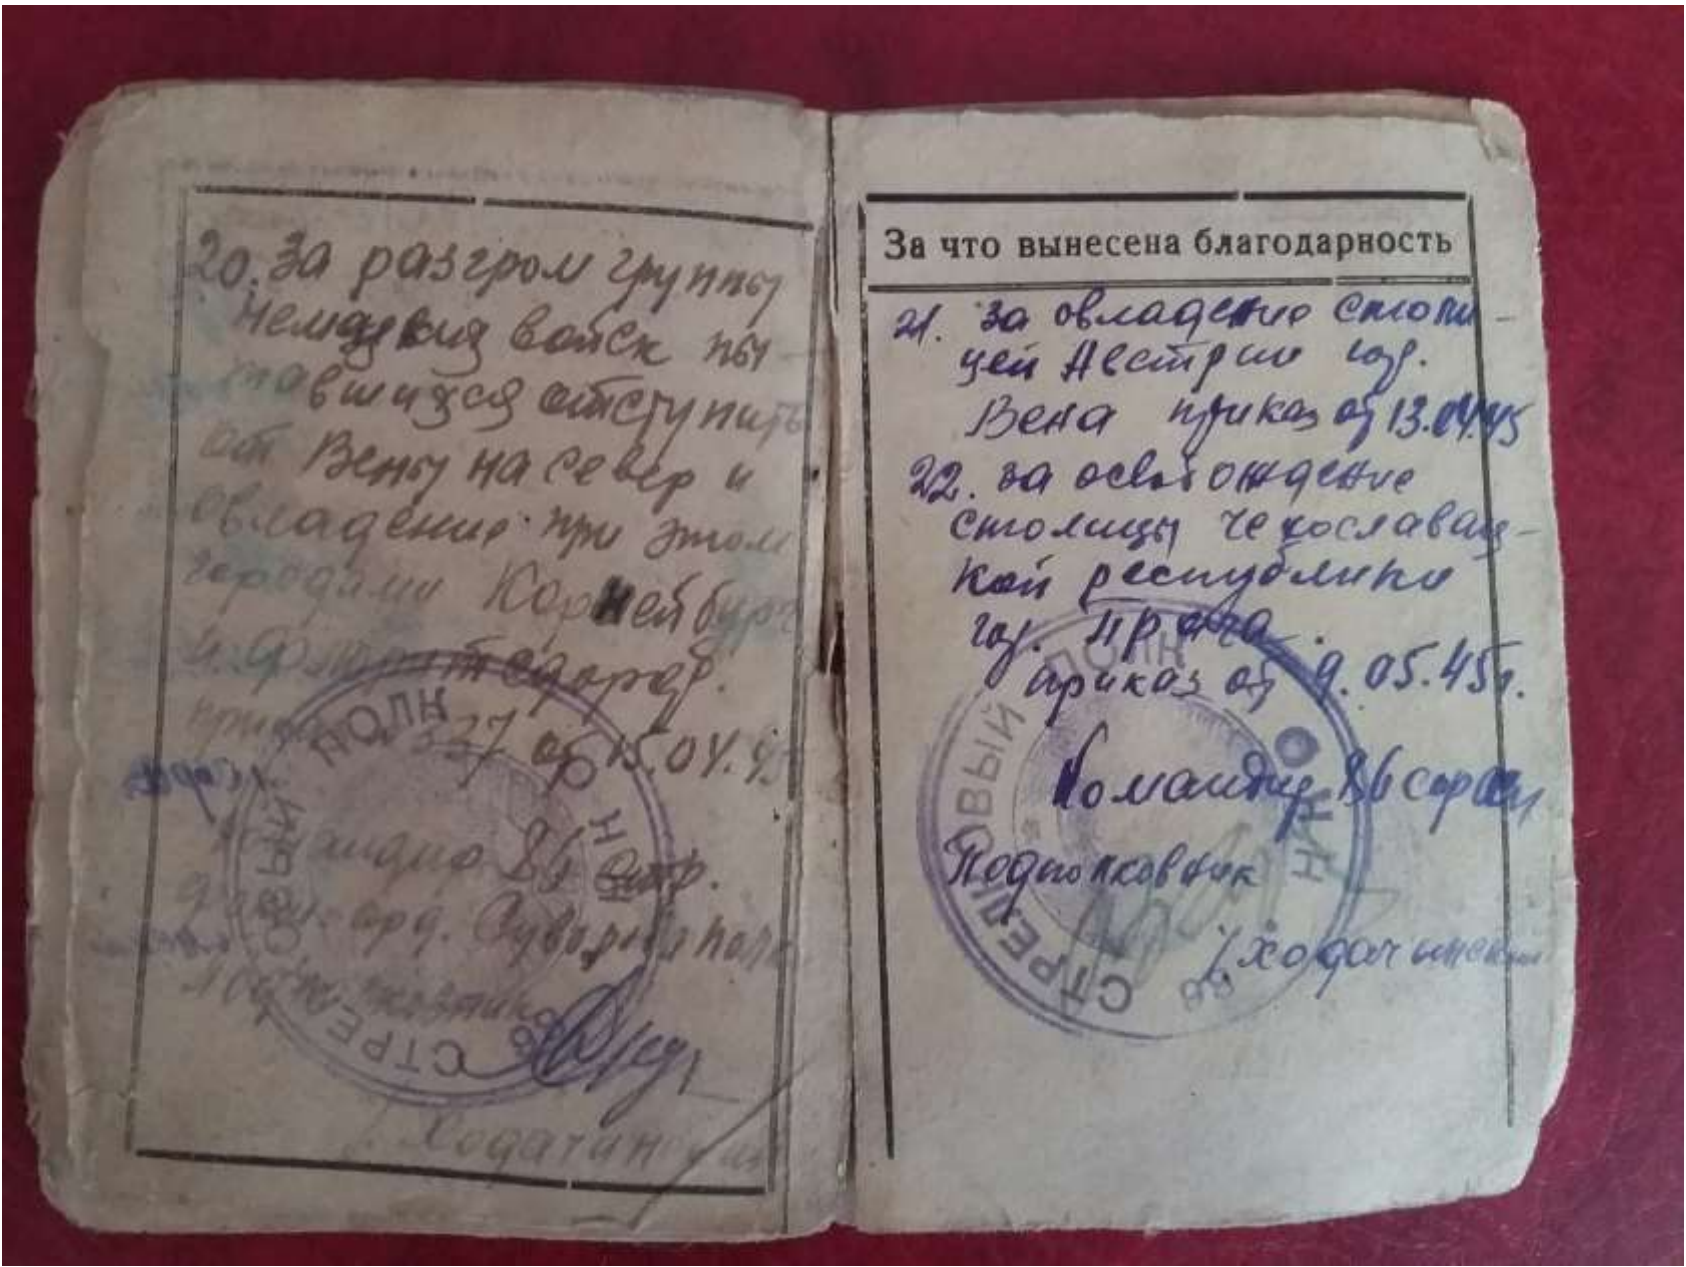 20. За разгром группы
немецких войск пы-
тавшихся отступить
от Вены на север и
овладение при этом
городами Корнейбург
и Флоридсдорф.
337 от 15.04.45
86 стр.
орд. Суворова полк
Ходачинский
СТРЕЛКОВЫЙ ПОЛК
Н К О
За что вынесена благодарность
21. За овладение столи-
цей Австрии гор.
Вена приказ от 13.04.45
22. за освобождение
столицы Чехославац-
кой республики
гор. Прага.
приказ от 9.05.45г.
Командир 86
Подполковник
/Ходачинский
СТРЕЛКОВЫЙ ПОЛК
86